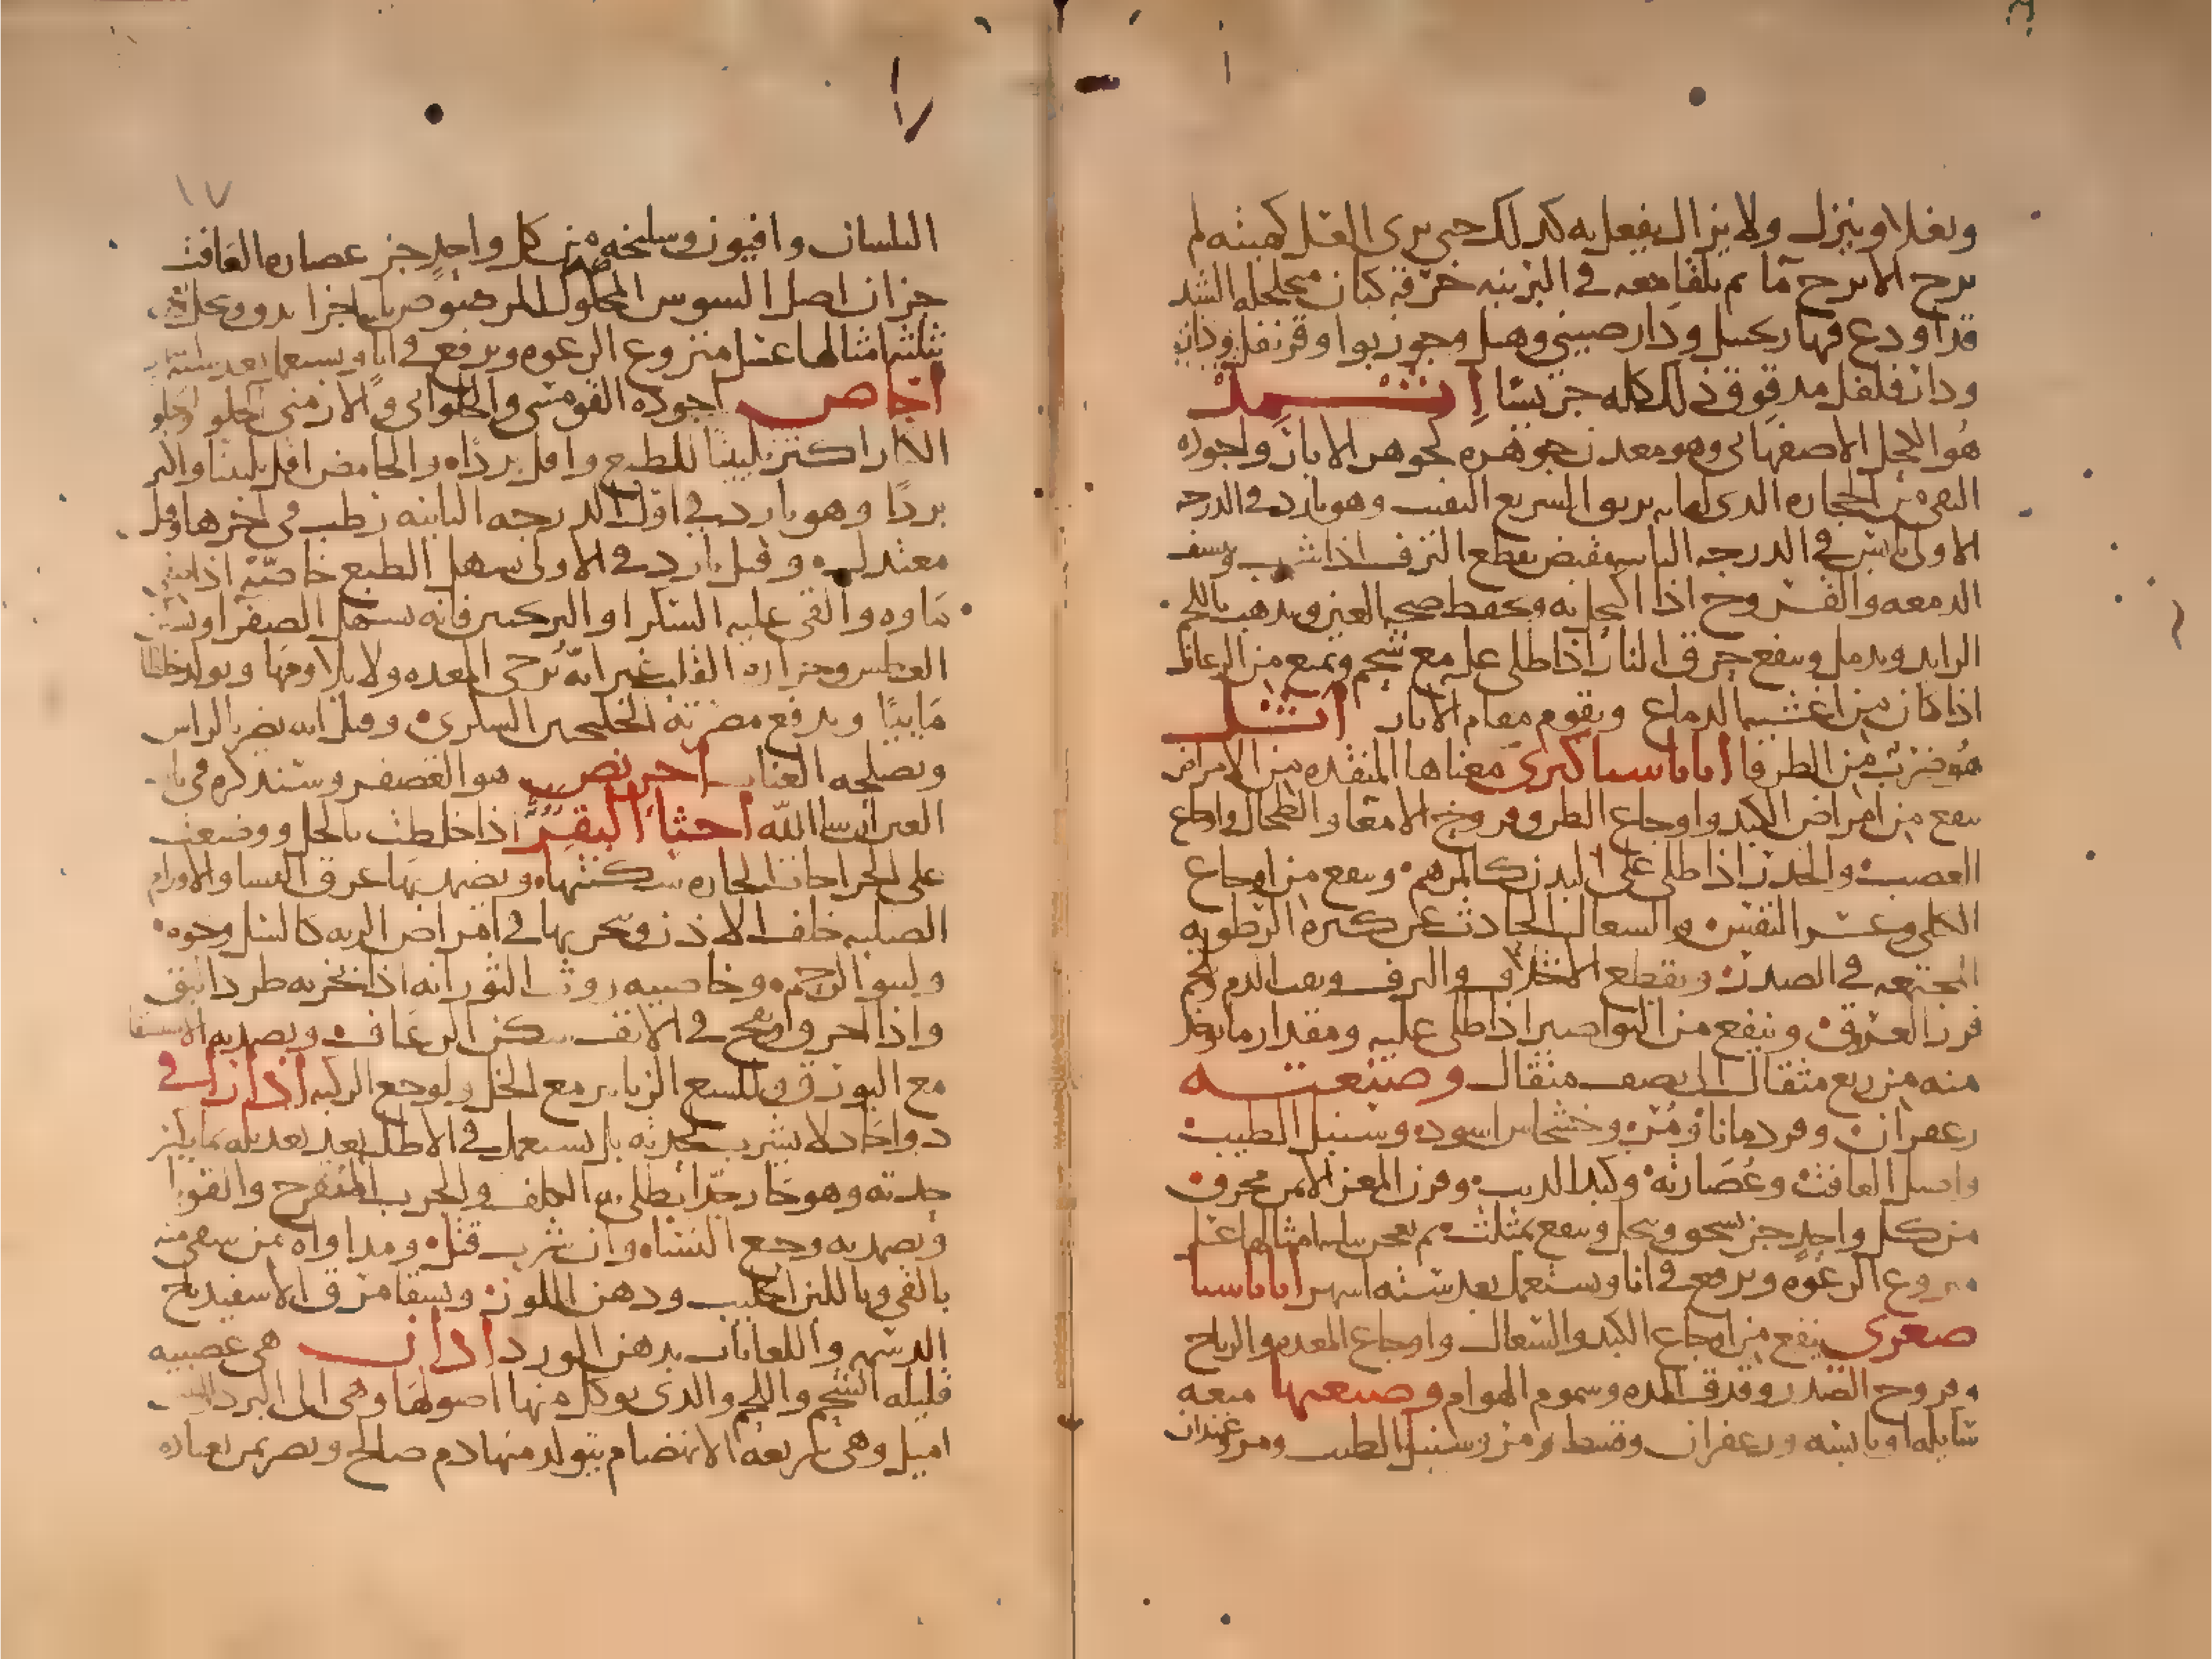 ويغلا وينزل ولا يزال يفعل به كدلك حتى يرى العسل كهيئته لم
يرح الاترج ما ثم يلقا معه في البرنيه خرقه كتان مخلخله الشد
قد اودع فيها زنجبيل ودار صيني وهيل وجوز بوا وقرنفل
ودار فلفل مدقوق ذلك كله جريشا إثمد
هو الكحل الاصفهاني وهو معدن جوهره كجوهر الابار واجوده
النقي من الحجاره الدى لفتاته بريق السريع التفتت وهو بارد في الدرجه
الاولى يابس في الدرجه الثانيه يقبض يقطع النزف اذا شرب
الدمعه والقروح اذا اكتحل به ويحفظ صحه العين ويدهب باللحم
الزايد ويدمل وينفع حرق النار اذا طلي عليه مع شحم ويمنع من الرعاف
اذا كان من اغشيه الدماغ ويقوم مقام الابار أثل
هو ضرب من الطرفا اثاناسيا كبرى معناها المنقده من الامراض
ينفع من امراض الكبد واوجاع وقروح الامعا والطحال واوجاع
العصب والبدن اذا طلي على البدن كالمرهم وينفع من اوجاع
الكلى وعسر النفس والسعال الحادث عن كثره الرطوبه
المجتمعه في الصدر ويقطع الاختلاف والنزف ونفث الدم
العروق وينفع من البواصير اذا طلي عليه ومقدار ما يوخذ
منه من ربع مثقال الى نصف مثقال وصنعته
زعفران وقردمانا ومر وخشخاش اسود وسنبل الطيب
واصل الغافث وعصارته وكبد الديب وقرن المعز الايمن محرق
من كل واحد جز يسحق وينخل وينقع بمثلث ثم يعجن بثلثه امثالها عسل
منزوع الرغوه ويرفع في انا ويستعمل بعد سته اشهر اثاناسيا
صغرى ينفع من اوجاع الكبد والسعال واوجاع المعده والرياح
وقروح الصدر وقدف المده وسموم الهوام وصنعتها ميعه
سايله او يابسه وزعفران وقسط ومر وسنبل الطيب
البلسان وافيون وسليخه من كل واحد جز عصاره الغافث
جزان اصل السوس المحلول المر اجزا يدق
ثلثه امثالها عسل منزوع الرغوه ويرفع في انا ويستعمل بعد سته
اجاص اجوده القومسي والحلواني والارمني حلو
الكبار اكثر تليينا للطبع واقل بردا والحامض اقل تليينا واكثر
بردا وهو بارد في اول الدرجه الثانيه رطب في اخرها وقيل
معتدل وقيل بارد في الاولى يسهل الطبع خاصيه اذا
ماوه والقي عليه السكر او الترنجبين فانه يسهل الصفرا
العطش وحراره القلب غير انه يرخي المعده ولا يلاومها ويولد خلطا
مائيا ويدفع مضرته الجلنجبين السكري وقيل انه يضر بالراس
ويصلحه العناب احريض هو العصفر وسنذكره في
العين ان شا الله أحثا البقر اذا خلطت بالخل ووضعت
على الجراحات الحاره سكنتها ويضمد بها عرق النسا والاورام
الصلبه خلف الاذن ويبخر بها في امراض الريه كالسل ونحوه
ولنتو الرحم وخاصيه روث الثور انه اذا بخر به طرد البق
واذا احرق ونفخ في الانف سكن الرعاف ويضمد به الاستسقا
مع البورق وللسع الزنابير مع الخل ولوجع الركبه اذاراقي
دوا حاد لا يشرب لحدته بل يستعمل في الاطليه بعد تعديله بما يكسر
حدته وهو حار جدا يطلى به الكلف والجرب المتقرح والقوبا
ويضمد به وجع النسا وان شرب قتل ومداواه من سقي منه
بالقي وباللبن الحليب ودهن اللوز ويسقا مرق الاسفيدباج
الدسم واللعابات بدهن الورد اذان هي عصبيه
قليله الشحم واللحم والذي يوكل منها اصولها وهي الى البرد
اميل وهي سريعه الانهضام يتولد منها دم صالح